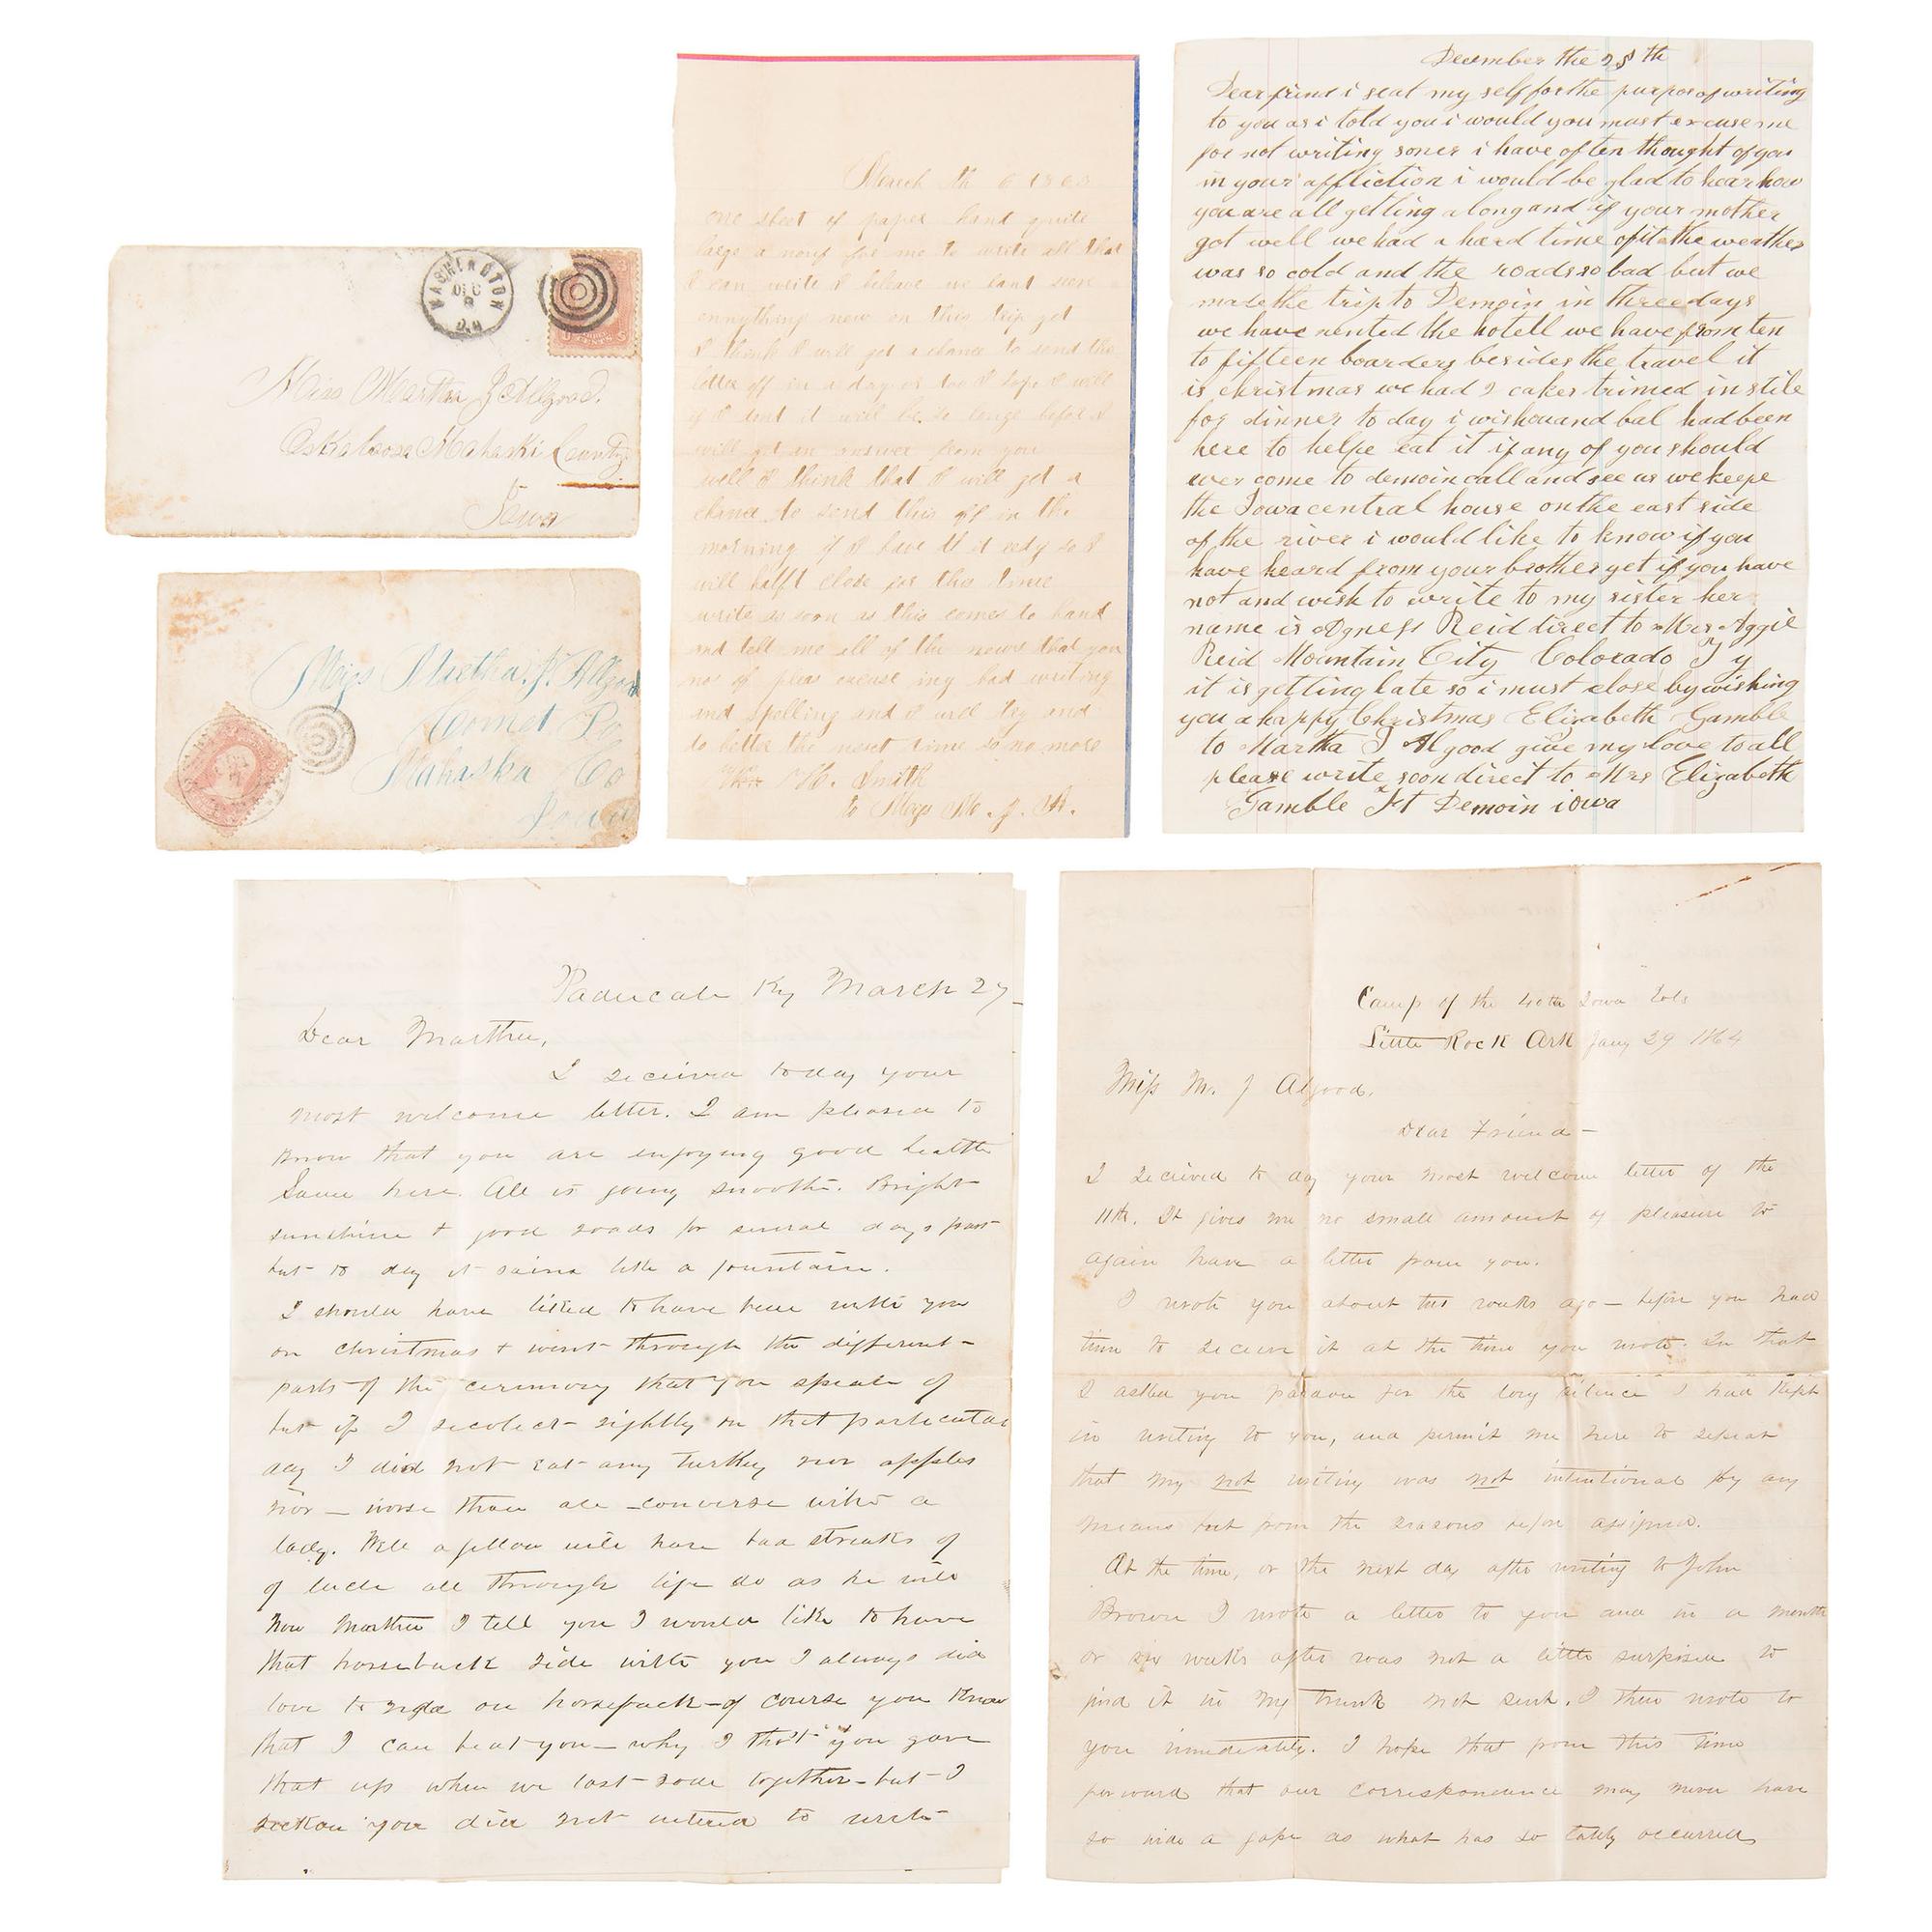 WASHINGTON
DEC
9
D.C.
Miss Martha J Allgood.
Oskaloosa Mahaski County
Iowa
Miss Martha. J. Allgood
Comet Po
Mahaska Co
Iowa
March th 6 1863
one sheet of paper hant quite
large a nouf for me to write all that
I can write I beleave we hant seen
ennything new on this trip yet
I think I will get a chance to send the
letter off in a day or too I hope I will
if I dont it will be so longe before I
will get an answer from you
well I think that I will get a
chance to send this off in the
morning if I have it redy so I
will halft close for this time
write as soon as this comes to hand
and tell me all of the news that you
no of pleas excuse my bad writing
and spelling and I will try and
do better the next time so no more
H. Smith
to Miss M. J. A.
December the 25th
Dear frend i seat my self for the purpos of writing
to you as i told you i would you must excuse me
for not writing soner i have often thought of you
in your affliction i would be glad to hear how
you are all getting along and if your mother
got well we had a hard time of it the weather
was so cold and the roads so bad but we
made the trip to Demoin in three days
we have rented the hotell we have from ten
to fifteen boarders besides the travel it
is christmas we had 2 cakes trimed in stile
for dinner to day i wish you and bal had been
here to helpe eat it if any of you should
ever come to demoin call and see us we keepe
the Iowa central house on the east side
of the river i would like to know if you
have heard from your brother yet if you have
not and wish to write to my sister her
name is Agness Reid direct to Mrs Aggie
Reid Mountain City Colorado Ty
it is getting late so i must close by wishing
you a happy Christmas Elizabeth Gamble
to Martha J Algood give my love to all
please write soon direct to Mrs Elizabeth
Gamble Ft Demoin iowa
Paducah Ky March 27
Dear Martha,
I received today your
most welcome letter. I am pleased to
know that you are enjoying good health
Same here. All is going smooth. Bright
sunshine + good roads for several days past
but to day it rains like a fountain.
I should have liked to have been with you
on christmas + went through the different
parts of the ceremony that you speak of
but if I recolect rightly on that particular
day I did not eat any turkey nor apples
nor — worse than all — converse with a
lady. Well a fellow will have bad streaks of
of luck all through life do as he will
Now Martha I tell you I would like to have
that horseback ride with you I always did
love to ride on horseback — of course you know
that I can beat you — why I tho't you gave
that up when we last rode together — but I
reckon you did not intend to write
Camp of the 40th Iowa Vols
Little Rock Ark Jany 29 1864
Miss M. J Algood.
Dear Friend —
I received to day your most welcome letter of the
11th. It gives me no small amount of pleasure to
again have a letter from you.
I wrote you about two weeks ago — before you had
time to receive it at the time you wrote. In that
I asked you pardon for the long silence I had kept
in writing to you, and permit me here to repeat
that my not writing was not intentional by any
means but from the reasons before assigned.
At the time, or the next day after writing to John
Brown I wrote a letter to you and in a month
or six weeks after was not a little surprised to
find it in my trunk not sent. I then wrote to
you immediately. I hope that from this time
forward that our correspondence may never have
so wide a gape as what has so lately occurred